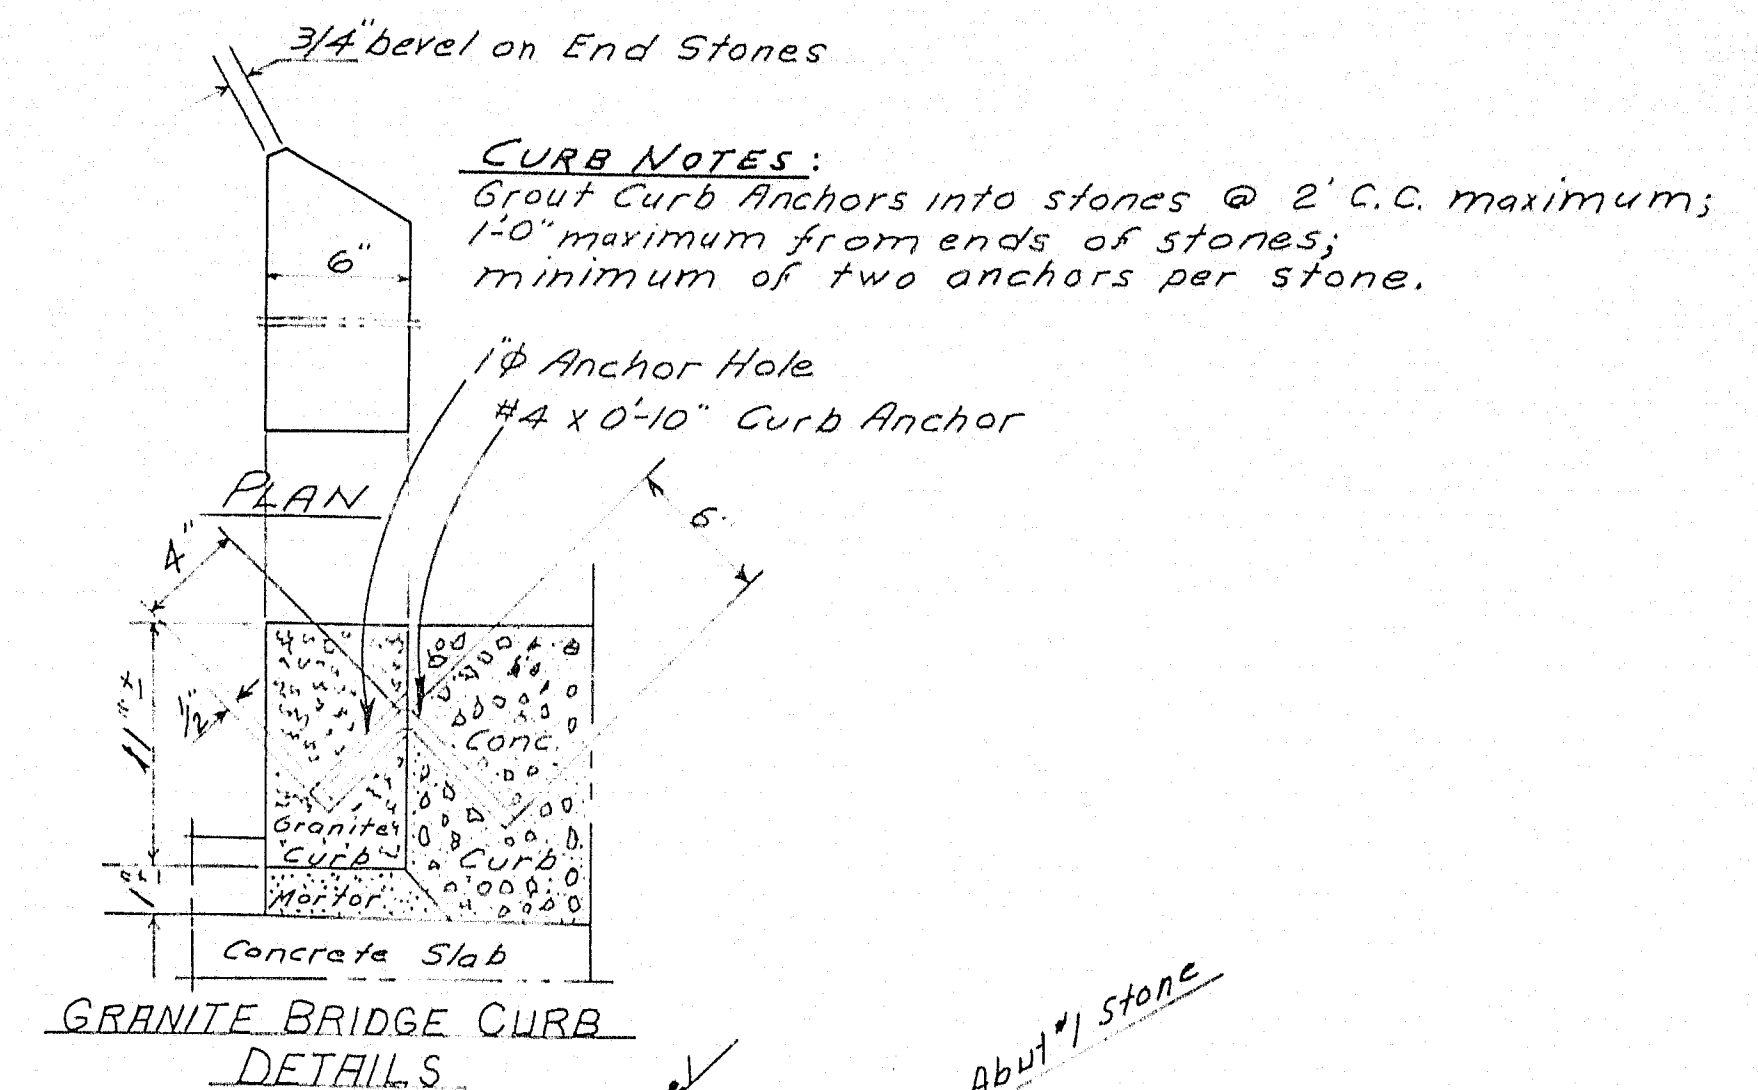 3/4" bevel on End Stones
CURB NOTES:
Grout Curb Anchors into stones @ 2' C.C. maximum;
1'-0" maximum from ends of stones;
minimum of two anchors per stone.
6"
1"ϕ Anchor Hole
#4 x 0'-10" Curb Anchor
PLAN
4"
6"
11"±
1/2"
Conc.
Granite
Curb
Curb
1"±
Mortor
Concrete Slab
GRANITE BRIDGE CURB
DETAILS
Abut #1 Stone